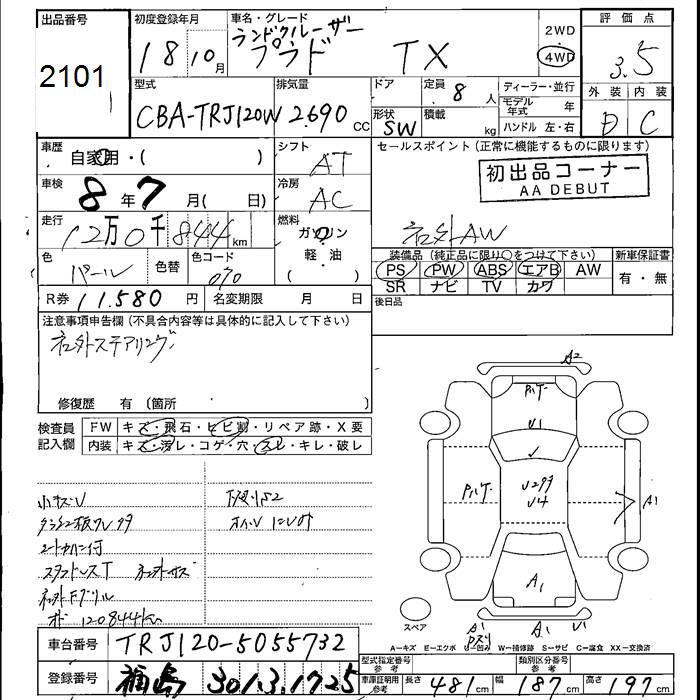 出品番号
2101
初度登録年月
18 10月
車名・グレード
ランドクルーザー
プラド TX
2WD
4WD
評価点
3.5
外装 内装
D C
型式
CBA-TRJ120W
排気量
2690 CC
ドア
形状
SW
定員
8 人
積載
kg
ディーラー・並行
モデル年式 年
ハンドル 左・右
車歴
自家用・( )
シフト
AT
セールスポイント(正常に機能するものに限ります)
初出品コーナー
AA DEBUT
社外AW
車検
8年7月( 日)
冷房
AC
走行
12万0千844km
燃料
ガソリン
軽油
( )
色
パール
色替
色コード
070
R券 11.580 円
名変期限 月 日
装備品(純正品に限り○をつけて下さい)
PS PW ABS エアB AW
SR ナビ TV カワ
新車保証書
有・無
後日品
注意事項申告欄(不具合内容等は具体的に記入して下さい)
社外ステアリング
修復歴 有〔箇所
検査員記入欄
FW キズ・飛石・ヒビ割・リペア跡・X要
内装 キズ・汚レ・コゲ・穴・スレ・キレ・破レ
小キズU
スタッドレスT
社外Fグリル
120844km
A2
U1
A1
A1
A1
U1
スペア
A-キズ E-エクボ U-凹み W-補修跡 S-サビ C-腐食 XX-交換済
車台番号 TRJ120-5055732
登録番号 福島 301 3 1725
型式指定番号
参考
類別区分番号
参考
車庫証明用
参考
長さ 481cm 幅 187cm 高さ 197cm